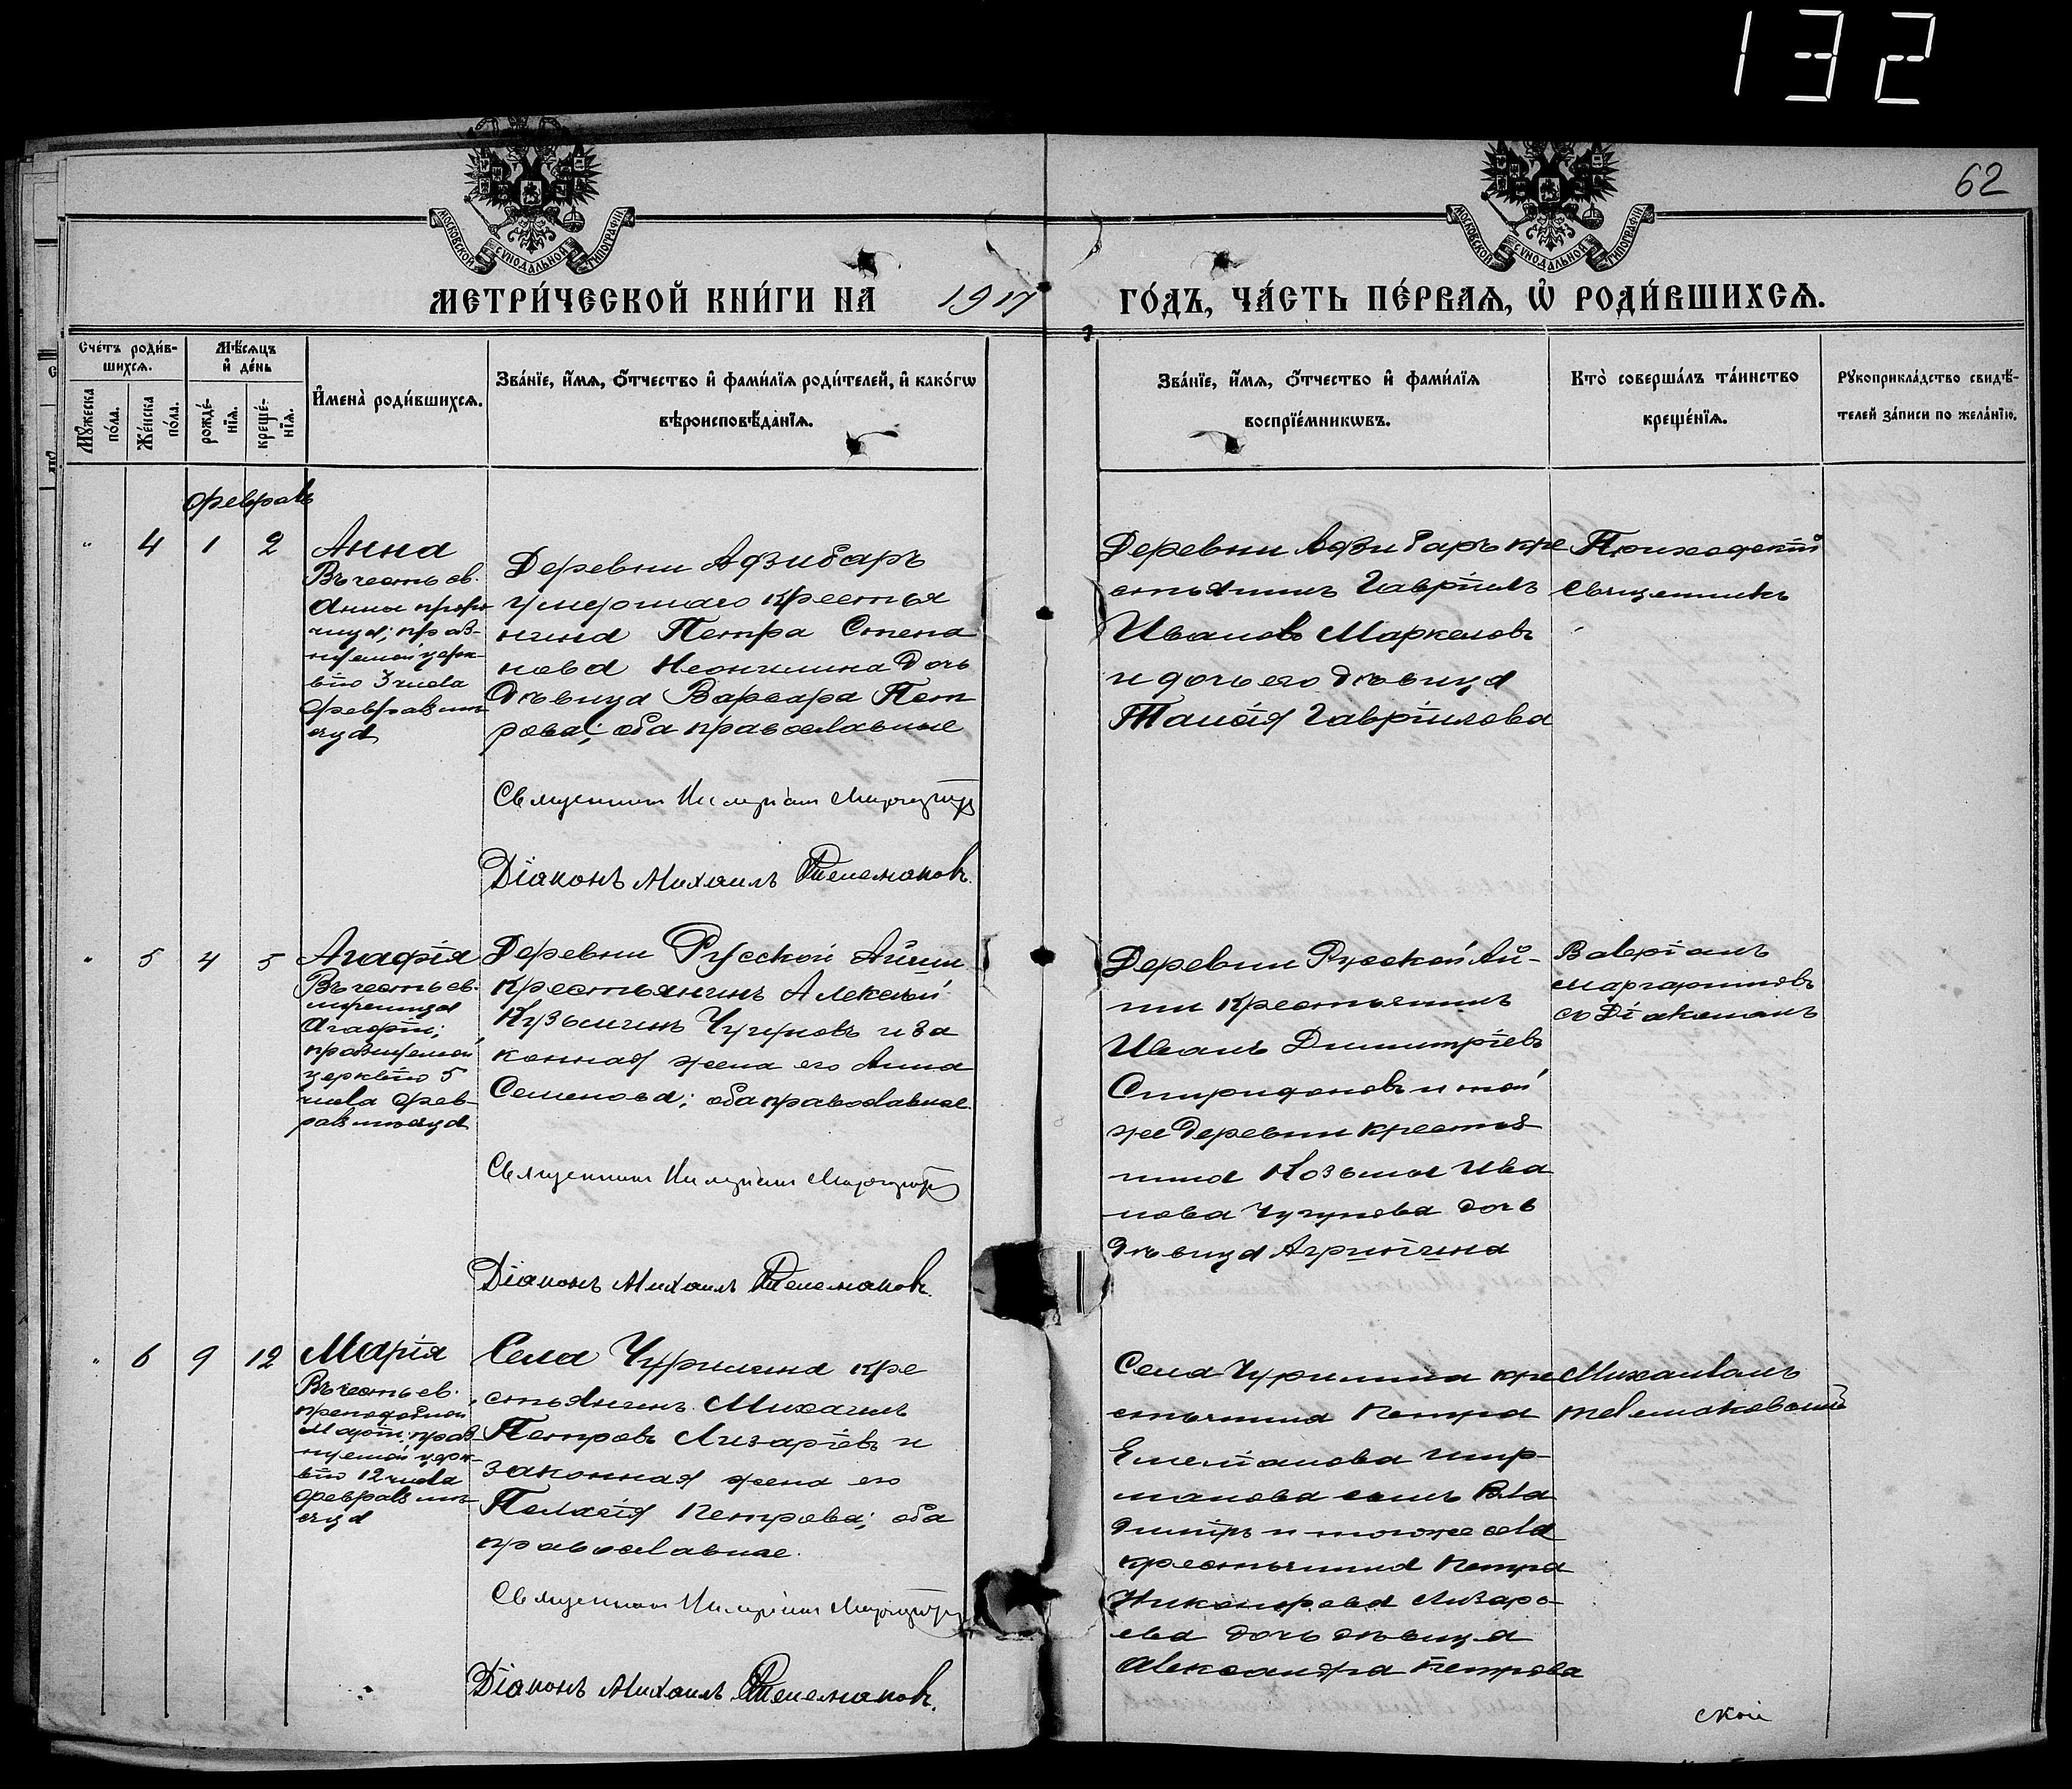 132
62
МОСКОВСКОЙ СѴНОДАЛЬНОЙ ТИПОГРАФІИ
МОСКОВСКОЙ СѴНОДАЛЬНОЙ ТИПОГРАФІИ
МЕТРИ́ЧЕСКОЙ КНИ́ГИ НА 1917 ГО́ДЪ, ЧА́СТЬ ПЕ́РВАѦ, Ѡ҆ РОДИ́ВШИХСѦ.
Сче́тъ роди́в-
шихсѧ.
Мꙋ́жеска
по́ла.
Же́нска
по́ла.
Мѣ́сѧцъ
и҆ де́нь
рожде́-
нїѧ.
креще́-
нїѧ.
И҆мена̀ роди́вшихсѧ.
Зва́нїе, и҆́мѧ, ѻ҆́тчество и҆ фами́лїѧ роди́телей, и҆ како́гѡ
вѣроисповѣ́данїѧ.
Зва́нїе, и҆́мѧ, ѻ҆́тчество и҆ фами́лїѧ
воспрїе́мникѡвъ.
Кто̀ соверша́лъ та́инство
креще́нїѧ.
Рꙋкоприкла́дство свидѣ́-
телей за́писи по жела́нїю.
Февраль
" 4 1 2
Анна
Въ честь св.
Анны проро
чицы; праз-
нуемой церк-
вію 3 числа
февраля мѣ-
сяца
Деревни Адзибаръ
умершаго крестья
нина Петра Степа
нова Неонилина дочь
дѣвица Варвара Пет
рова; оба православные
Священник
Діаконъ Михаилъ Телемаковъ.
Деревни Адзибаръ кре
стьянинъ Гавріилъ
Ивановъ Маркеловъ
и дочь его дѣвица
Таисія Гавріилова
Приходскій
священникъ
" 5 4 5
Агафія
Въ честь св.
мученицы
Агафіи;
празнуемой
церквію 5
числа фев-
раля мѣсяца
Деревни Русской Айши
крестьянинъ Алексѣй
Кузьминъ Чугуновъ и за
конная жена его Анна
Семенова; оба православные.
Священник
Діаконъ Михаилъ Телемаковъ.
Деревни Русской Ай-
ши крестьянинъ
Иванъ Димитріевъ
Спиридоновъ и той
же деревни крестья
нина Козьмы Ива
нова Чугунова дочь
дѣвица Агрипина
Валеріанъ
Маргаритовъ
съ Діакономъ
" 6 9 12
Марія
Въ честь св.
преподобной
Маріи; праз-
нуемой церк-
вію 12 числа
февраля мѣ-
сяца
Села Чурилина кре
стьянинъ Михаилъ
Петровъ Лизаріевъ и
законная жена его
Пелагія Петрова; оба
православные.
Священник
Діаконъ Михаилъ Телемаковъ.
Села Чурилина кре
стьянина Петра
Емеліанова
сынъ Вла
димір и того же села
крестьянина Петра
Никанорова Лизарі-
ева дочь дѣвица
Александра Петрова
Михаиломъ
Телемаковымъ
ской